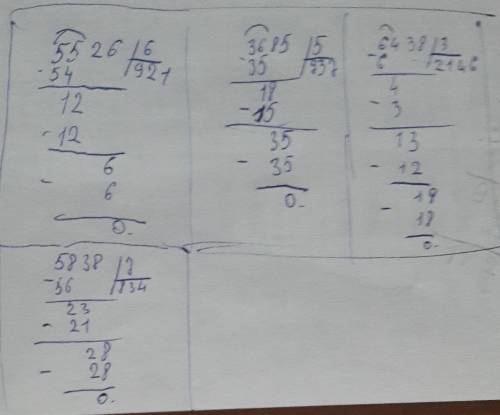 5526 | 6
-54 | 921
12
-12
6
- 6
0.
3685 | 5
-35 | 737
18
-15
35
- 35
0.
6438 | 3
-6 | 2146
4
- 3
13
- 12
19
- 18
0.
5838 | 7
-56 | 834
23
- 21
28
- 28
0.